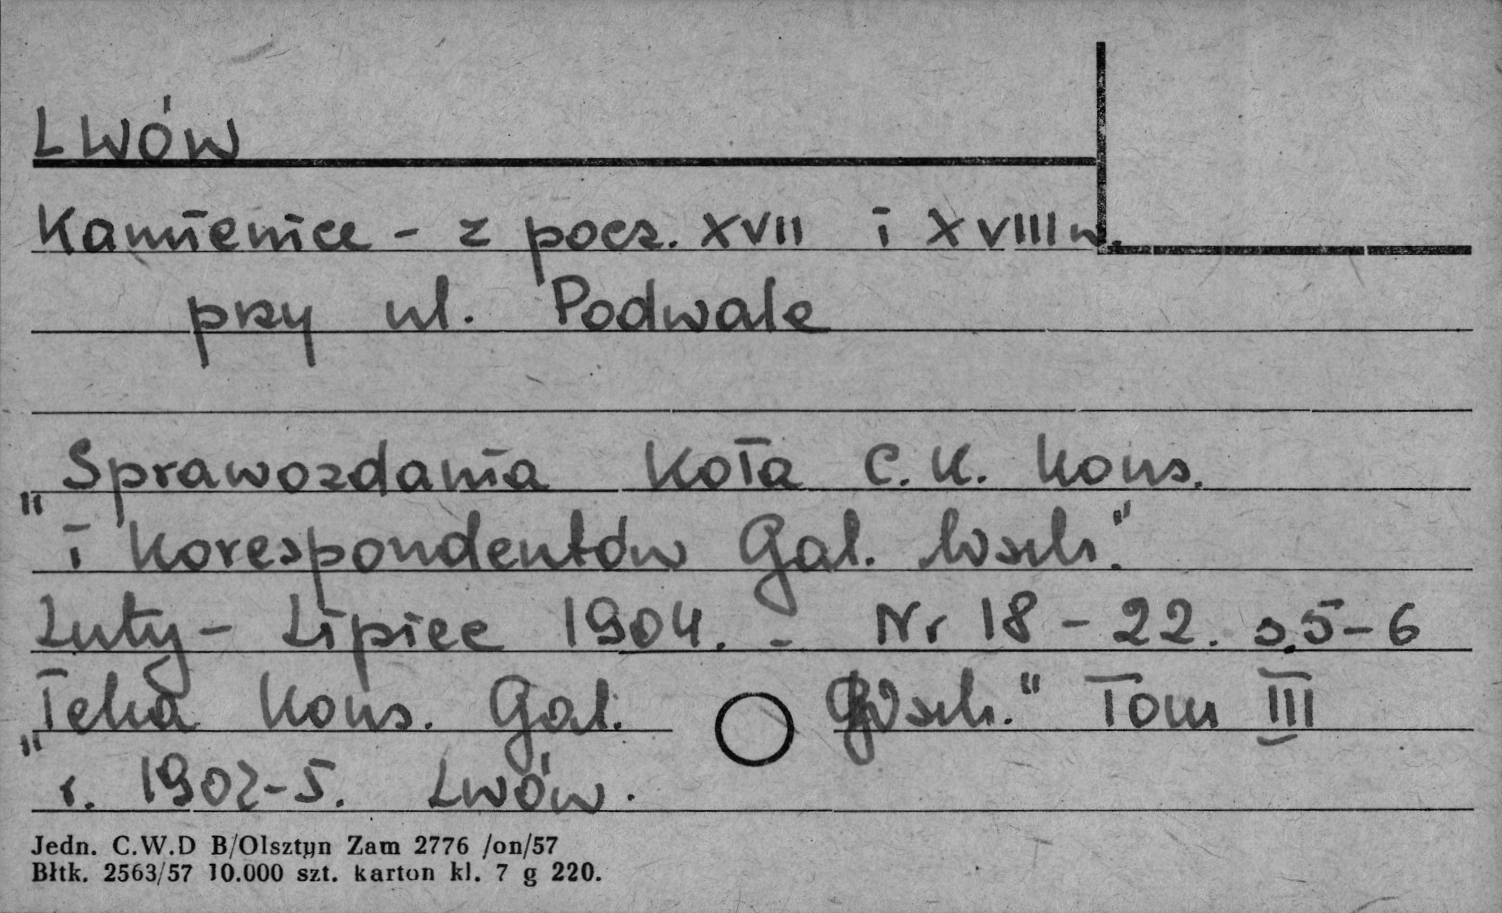 LWÓW
Kamienice - z pocz. XVII i XVIII w.
przy ul. Podwale
„Sprawozdania Koła C.K. Kons.
i Korespondentów Gal. Wsch."
Luty - Lipiec 1904. - Nr 18 - 22. s.5-6
„Teka Kons. Gal. Wsch." Tom III
r. 1902-5. Lwów.
Jedn. C.W.D B/Olsztyn Zam 2776 /on/57
Błtk. 2563/57 10.000 szt. karton kl. 7 g 220.